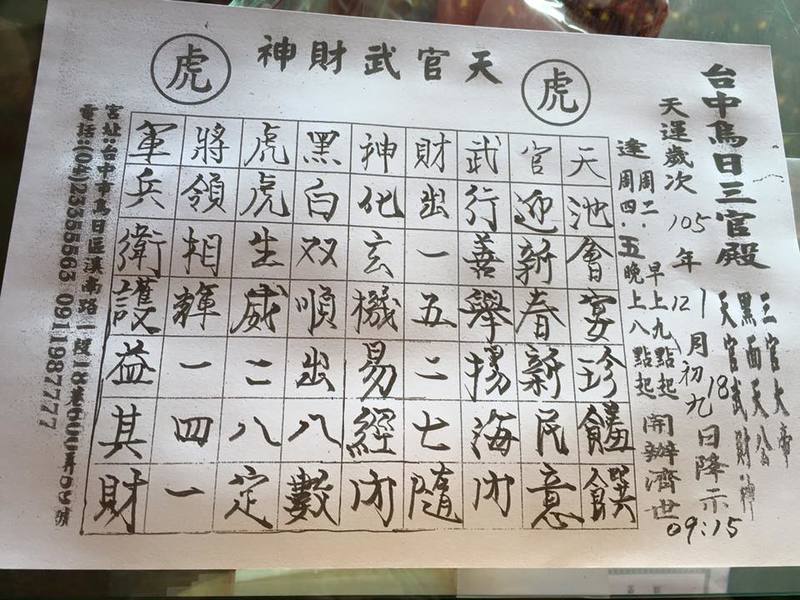 台中烏日三官殿
三官大帝
黑面天公
天官武財神
天運歲次 105 年 12/1 月初九 18 日降示
09:15
逢 周二. 早上九點起
周四.五 晚上八點起
開辦濟世
虎
天官武財神
虎
天池會宴珍饈饌
官迎新春新民意
武行善舉揚海內
財出一五二七隨
神化玄機易經內
黑白双順出八數
虎虎生威二八定
將領相輝一四一
軍兵衛護益其財
宮址:台中市烏日區溪南路一段
電話:(04)23355563 0911987777